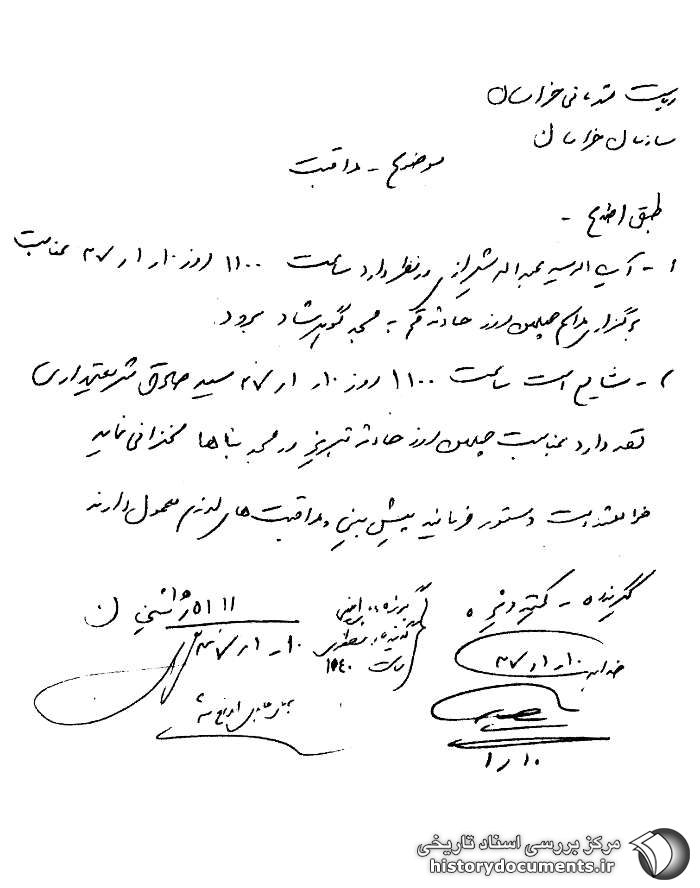 ریاست شهربانی خراسان
سازمان خراسان
موضوع - مراقبت
طبق اطلاع -
۱- آیت اله سید عبداله شیرازی در نظر دارد ساعت ۱۱۰۰ روز ۱۰ر۱ر۳۷ بمناسبت
برگزاری مراسم چهلمین روز حادثه قم به مسجد گوهرشاد برود
۲- شایع است ساعت ۱۱۰۰ روز ۱۰ر۱ر۳۷ سید صادق شریعتمداری
قصد دارد بمناسبت چهلمین روز حادثه تبریز در مسجد بناها سخنرانی نماید
خواهشمند است دستور فرمایند پیش بینی و مراقبت های لازم معمول دارند
گیرنده -
۱۰ر۱ر۳۷
گوینده :
ساعت ۱۵۴۰
۱۰ر۱ر۳۷
۱۰ر۱
مرکز بررسی اسناد تاریخی
historydocuments.ir